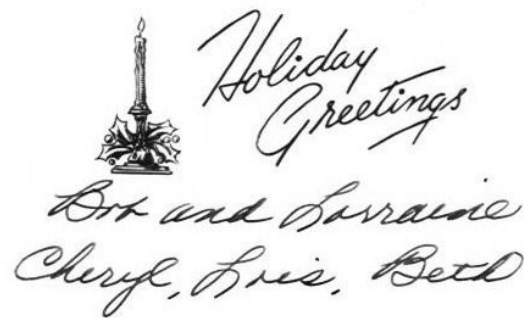 Holiday
Greetings
Bob and Lorraine
Cheryl, Lois, Beth